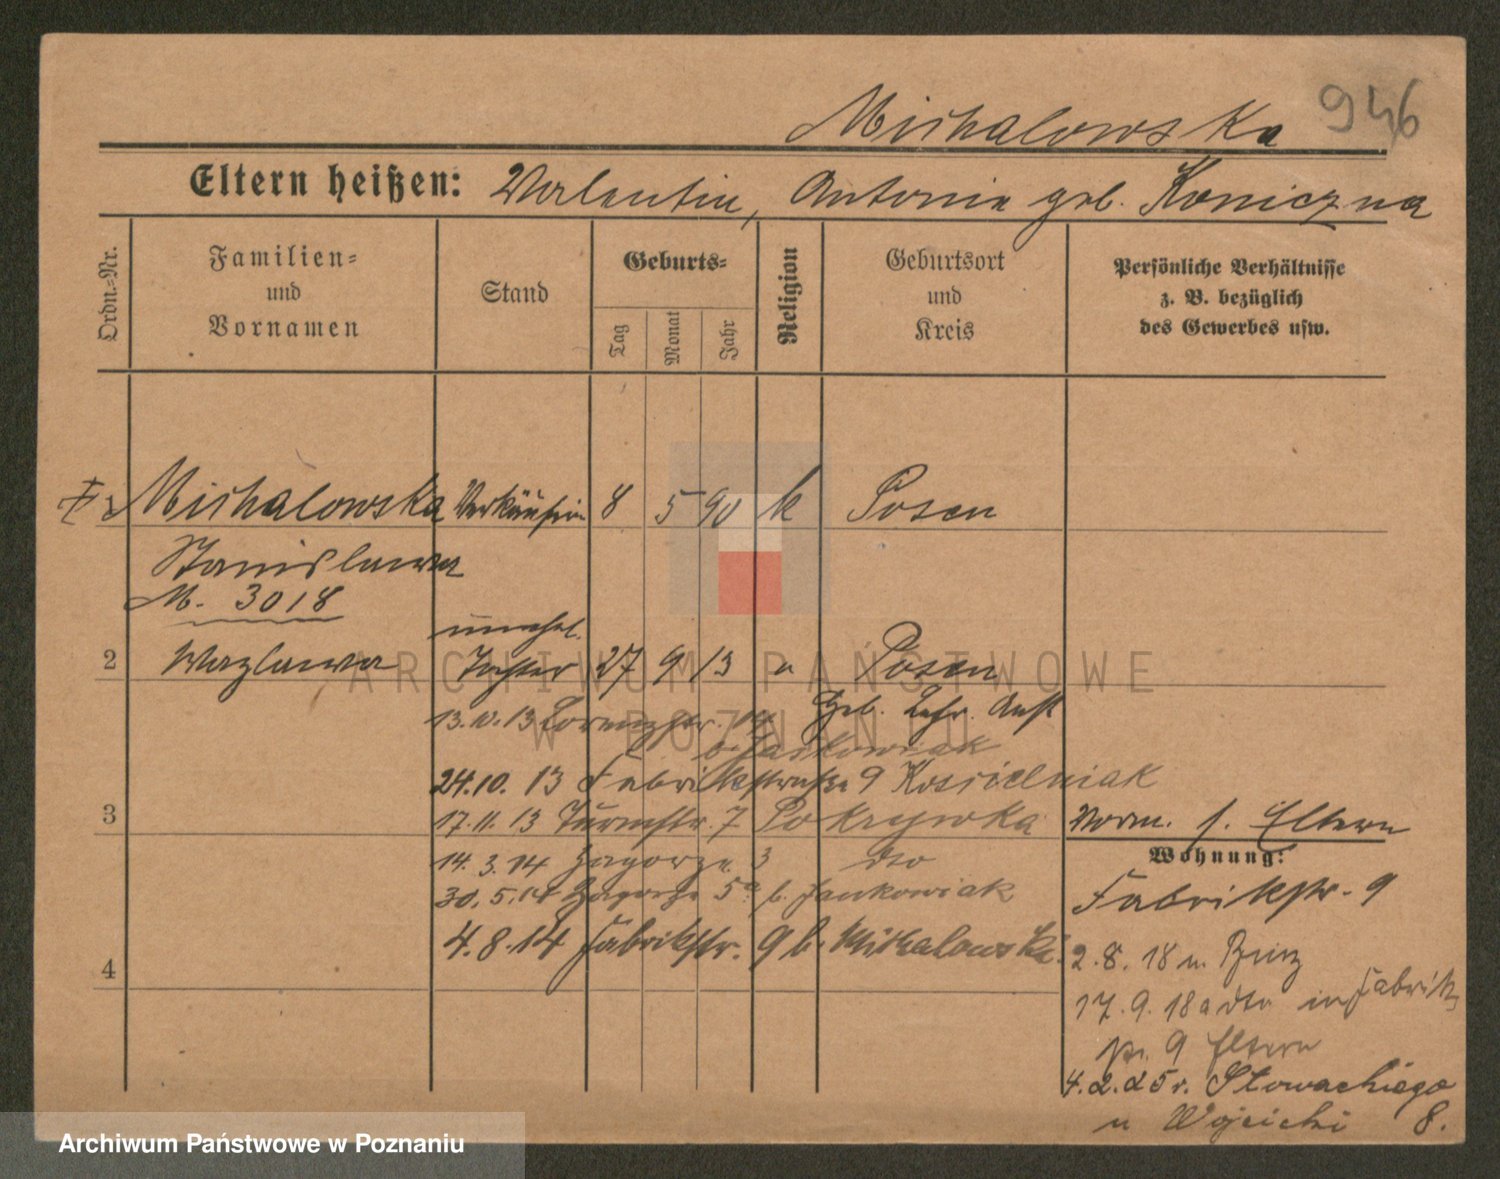 Michalowska 946
Eltern heißen: Valentin, Antonie geb. Koniczna
Ordn.-Nr.
Familien-
und
Vornamen
Stand
Geburts-
Tag
Monat
Jahr
Religion
Geburtsort
und
Kreis
Persönliche Verhältnisse
z. B. bezüglich
des Gewerbes usw.
Michalowska Verkäuferin 8 5 90 k Posen
Stanislawa
M. 3018
unehel.
2 Wazlawa Tochter 27 9 13 " Posen
13.10.13 Lorenzstr. Heb. Lehr. Anst
b. Jankowiak
24.10. 13 Fabrikstraße 9 Kosielniak
3 17.11.13 Turmstr. 7 Pokrywka
Vorm. s. Eltern
14.3.14 Zagorze 3 dto
Wohnung:
30.5.14 Zagorze 5a b. Jankowiak
Fabrikstr. 9
4.8.14 Fabrikstr. 9 b. Michalowski.
4
2.8.18 n. Binz
17.9.18 a dto in Fabrik
9 Eltern
4.2.25 v. Slowackiego 8.
u Wojcicki
ARCHIWUM PAŃSTWOWE
W POZNANIU
Archiwum Państwowe w Poznaniu